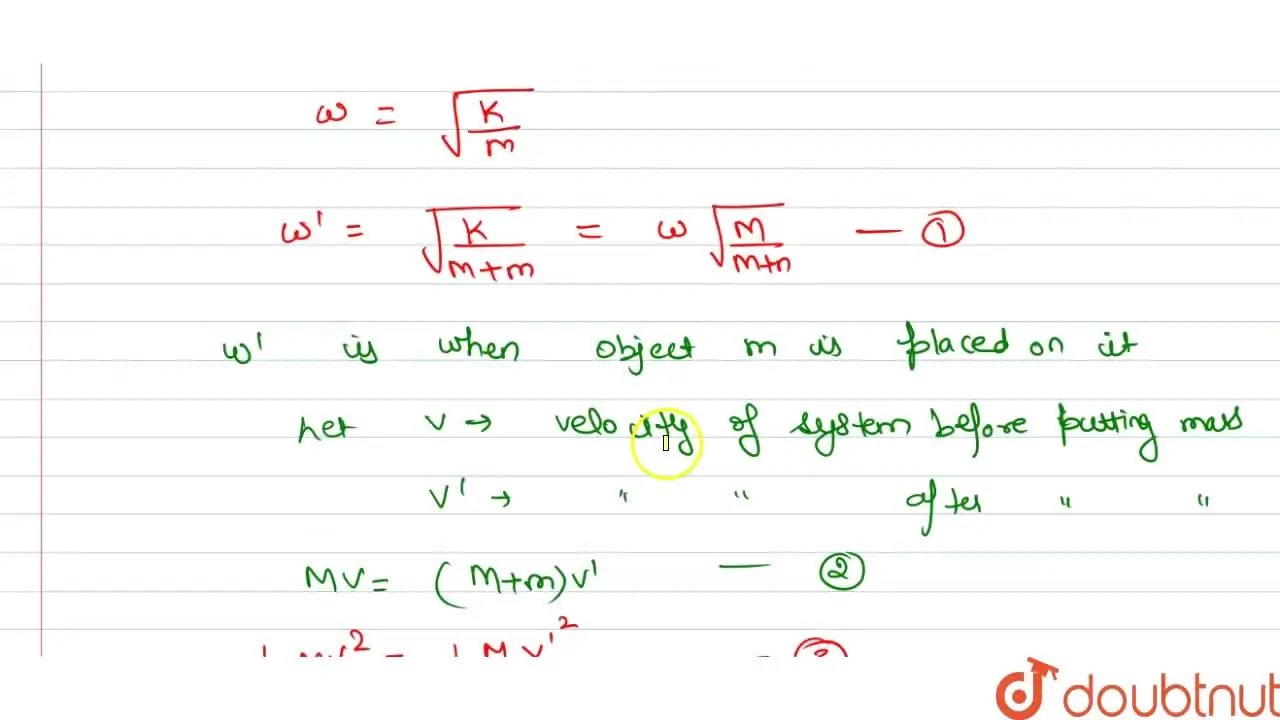 ω = √(K/m)
ω' = √(K/(m+m)) = ω √(M/(m+m)) — ①
ω' is when object m is placed on it
Let V → velocity of system before putting mass
V' → " " after " "
MV = (M+m)V' — ②
MV² = M V'²
doubtnut